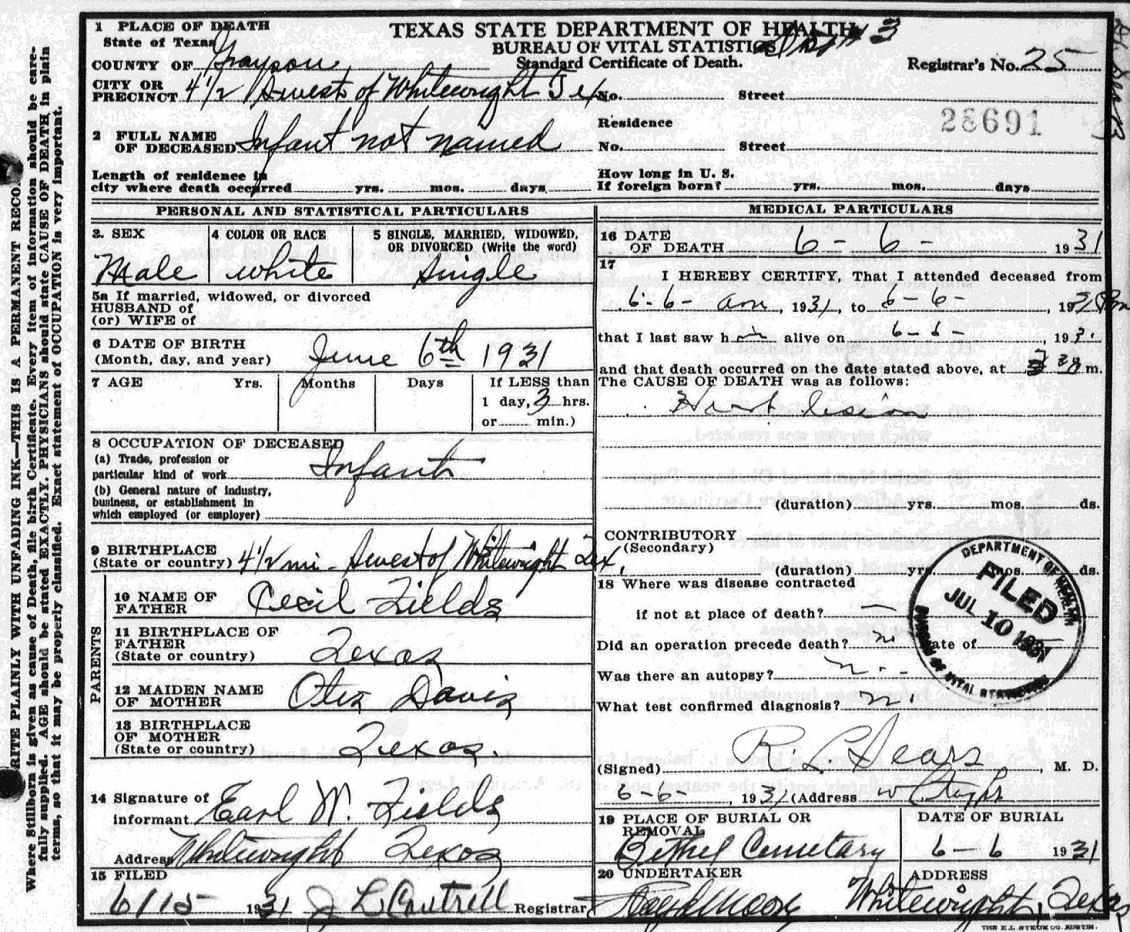 1 PLACE OF DEATH
State of Texas
COUNTY OF Grayson
CITY OR PRECINCT 4 1/2 Swest of Whitewright Tex
TEXAS STATE DEPARTMENT OF HEALTH
BUREAU OF VITAL STATISTICS
Standard Certificate of Death.
Registrar's No. 25
No. Street
Residence
No. Street
28691
2 FULL NAME OF DECEASED Infant not named
Length of residence in
city where death occurred yrs. mos. days
How long in U. S.
If foreign born? yrs. mos. days
PERSONAL AND STATISTICAL PARTICULARS
3. SEX
Male
4 COLOR OR RACE
white
5 SINGLE, MARRIED, WIDOWED,
OR DIVORCED (Write the word)
Single
5a If married, widowed, or divorced
HUSBAND OF
(or) WIFE OF
6 DATE OF BIRTH
(Month, day, and year) June 6th 1931
7 AGE Yrs. Months Days If LESS than
1 day, 3 hrs.
or min.)
8 OCCUPATION OF DECEASED
(a) Trade, profession or
particular kind of work Infant
(b) General nature of industry,
business, or establishment in
which employed (or employer)
9 BIRTHPLACE
(State or country) 4 1/2 mi - Swest of Whitewright Tex,
PARENTS
10 NAME OF
FATHER Cecil Fields
11 BIRTHPLACE OF
FATHER
(State or country) Texas
12 MAIDEN NAME
OF MOTHER Davis
13 BIRTHPLACE
OF MOTHER
(State or country) Texas.
14 Signature of
informant Earl W. Fields
Address Whitewright Texas
15 FILED
6/15 1931 J L Cantrell Registrar
MEDICAL PARTICULARS
16 DATE
OF DEATH 6 - 6 - 1931
17
I HEREBY CERTIFY, That I attended deceased from
6-6- am, 1931, to 6-6-
that I last saw him alive on 6-6- 193
and that death occurred on the date stated above, at m.
The CAUSE OF DEATH was as follows:
Heart lesion
(duration) yrs. mos. ds.
CONTRIBUTORY
(Secondary)
(duration) yrs. mos. ds.
18 Where was disease contracted
if not at place of death? —
Did an operation precede death? no Date of
Was there an autopsy? no
What test confirmed diagnosis?
(Signed) R. L. Sears, M. D.
6-6-, 1931 (Address
DEPARTMENT OF HEALTH
FILED
JUL 10 1931
DIVISION OF VITAL STATISTICS
19 PLACE OF BURIAL OR
REMOVAL
Bethel Cemetary
DATE OF BURIAL
6-6 1931
20 UNDERTAKER
ADDRESS
Whitewright, Texas
THE E.L. STECK CO. AUSTIN.
WRITE PLAINLY WITH UNFADING INK—THIS IS A PERMANENT RECO
Where Stillborn is given as cause of Death, file birth Certificate. Every item of information should be care-
fully supplied. AGE should be stated EXACTLY. PHYSICIANS should state CAUSE OF DEATH in plain
terms, so that it may be properly classified. Exact statement of OCCUPATION is very important.